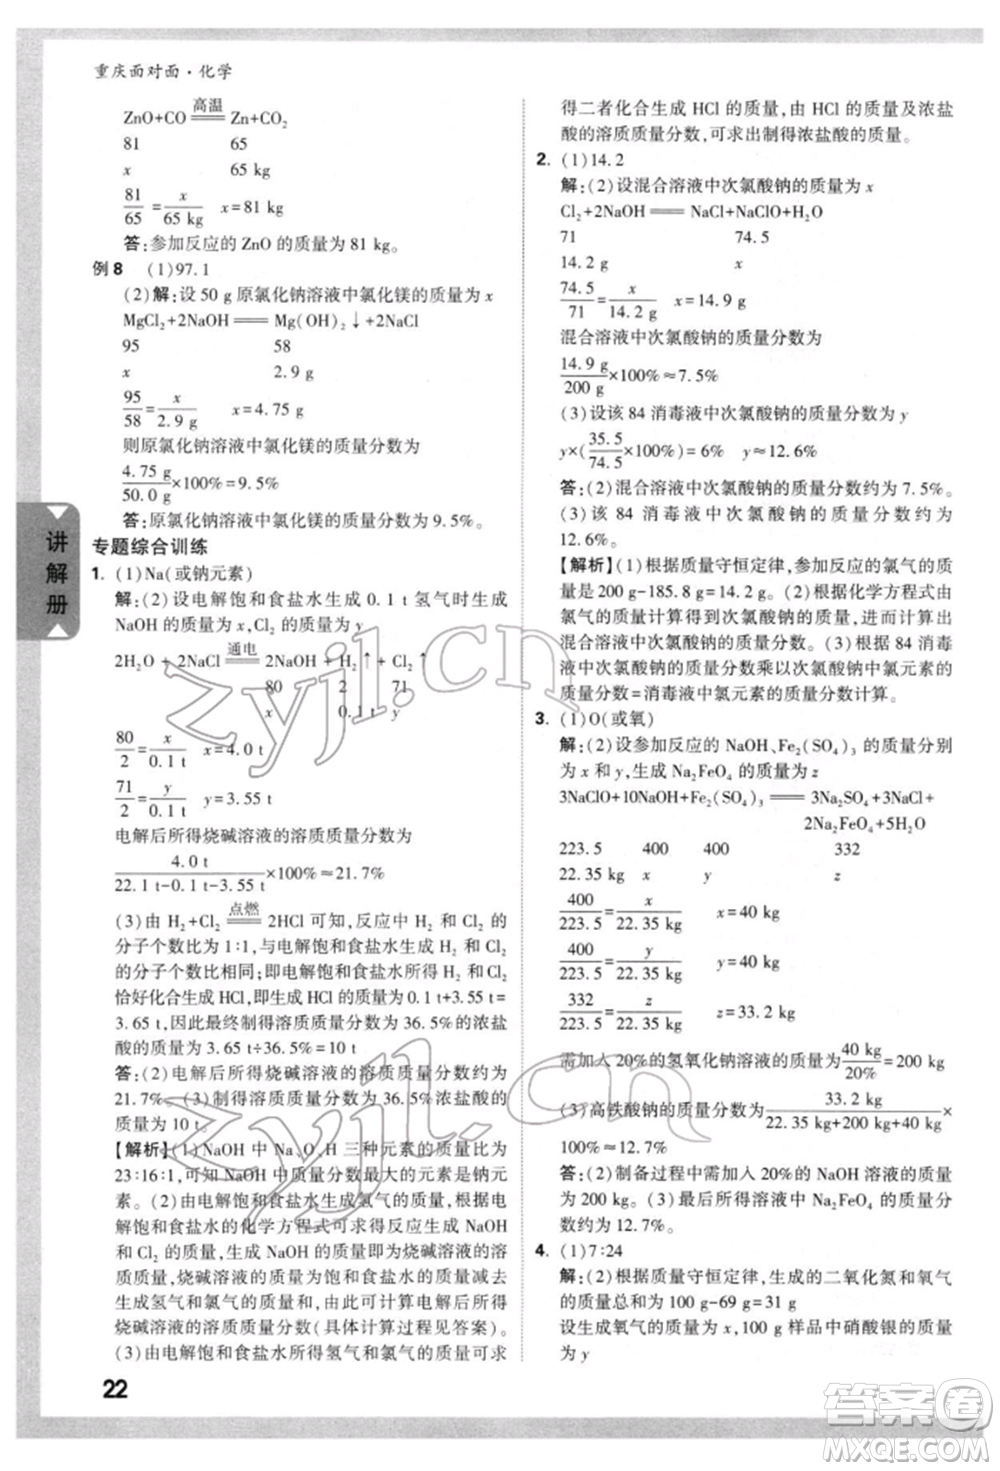 重庆面对面·化学
高温
ZnO+CO══Zn+CO₂
81 65
x 65 kg
81/65=x/65 kg x=81 kg
答:参加反应的 ZnO 的质量为 81 kg。
例 8 (1)97.1
(2)解:设 50 g 原氯化钠溶液中氯化镁的质量为 x
MgCl₂+2NaOH══Mg(OH)₂↓+2NaCl
95 58
x 2.9 g
95/58=x/2.9 g x=4.75 g
则原氯化钠溶液中氯化镁的质量分数为
4.75 g/50.0 g×100%=9.5%
答:原氯化钠溶液中氯化镁的质量分数为 9.5%。
专题综合训练
1. (1)Na(或钠元素)
解:(2)设电解饱和食盐水生成 0.1 t 氢气时生成
NaOH 的质量为 x,Cl₂ 的质量为 y
通电
2H₂O + 2NaCl══2NaOH + H₂↑ + Cl₂↑
80 2 71
x 0.1 t y
80/2=x/0.1 t x=4.0 t
71/2=y/0.1 t y=3.55 t
电解后所得烧碱溶液的溶质质量分数为
4.0 t/(22.1 t-0.1 t-3.55 t)×100%≈21.7%
(3)由 H₂+Cl₂ 点燃══ 2HCl 可知,反应中 H₂ 和 Cl₂ 的
分子个数比为 1:1,与电解饱和食盐水生成 H₂ 和 Cl₂
分子个数比相同;即电解饱和食盐水所得 H₂ 和 Cl₂
恰好化合生成 HCl,即生成 HCl 的质量为 0.1 t+3.55 t=
3.65 t,因此最终制得溶质质量分数为 36.5%的浓盐
酸的质量为 3.65 t÷36.5%=10 t
答:(2)电解后所得烧碱溶液的溶质质量分数约为
21.7%。(3)制得溶质质量分数为 36.5%浓盐酸的
质量为 10 t。
【解析】(1)NaOH 中 Na、O、H 三种元素的质量比为
23:16:1,可知 NaOH 中质量分数最大的元素是钠元
素。(2)由电解饱和食盐水生成氢气的质量,根据电
解饱和食盐水的化学方程式可求得反应生成 NaOH
和 Cl₂ 的质量,生成 NaOH 的质量即为烧碱溶液的溶
质质量,电解后溶液的质量为反应前的质量减去
生成氢气和氯气的质量和,由此可计算电解后所得
烧碱溶液的溶质质量分数(具体计算过程见答案)。
(3)由电解饱和食盐水所得氢气和氯气的质量可求
得二者化合生成 HCl 的质量,由 HCl 的质量及浓盐
酸的溶质质量分数,可求出制得浓盐酸的质量。
2. (1)14.2
解:(2)设混合溶液中次氯酸钠的质量为 x
Cl₂+2NaOH══NaCl+NaClO+H₂O
71 74.5
14.2 g x
74.5/71=x/14.2 g x=14.9 g
混合溶液中次氯酸钠的质量分数为
14.9 g/200 g×100%≈7.5%
(3)设该 84 消毒液中次氯酸钠的质量分数为 y
y×(35.5/74.5×100%)=6% y≈12.6%
答:(2)混合溶液中次氯酸钠的质量分数约为 7.5%。
(3)该 84 消毒液中次氯酸钠的质量分数约为
12.6%。
【解析】(1)根据质量守恒定律,参加反应的氯气的质
量为 200 g-185.8 g=14.2 g。(2)根据化学方程式由
氯气的质量计算得到次氯酸钠的质量,进而计算出
混合溶液中次氯酸钠的质量分数。(3)根据 84 消毒
液中次氯酸钠的质量分数乘以次氯酸钠中氯元素的
质量分数=消毒液中氯元素的质量分数计算。
3. (1)O(或氧)
解:(2)设参加反应的 NaOH、Fe₂(SO₄)₃ 的质量分别
为 x 和 y,生成 Na₂FeO₄ 的质量为 z
3NaClO+10NaOH+Fe₂(SO₄)₃══3Na₂SO₄+3NaCl+
2Na₂FeO₄+5H₂O
223.5 400 400 332
22.35 kg x y z
400/223.5=x/22.35 kg x=40 kg
400/223.5=y/22.35 kg y=40 kg
332/223.5=z/22.35 kg z=33.2 kg
需加入 20%的氢氧化钠溶液的质量为40 kg/20%=200 kg
(3)高铁酸钠的质量分数为33.2 kg/(22.35 kg+200 kg+40 kg)×
100%≈12.7%
答:(2)制备过程中需加入 20%的 NaOH 溶液的质量
为 200 kg。(3)最后所得溶液中 Na₂FeO₄ 的质量分
数约为 12.7%。
4. (1)7:24
解:(2)根据质量守恒定律,生成的二氧化氮和氧气
的质量总和为 100 g-69 g=31 g
设生成氧气的质量为 x,100 g 样品中硝酸银的质量
为 y
讲解册
22
zyjl.cn
zyjl.cn
答案圈
MXQE.COM